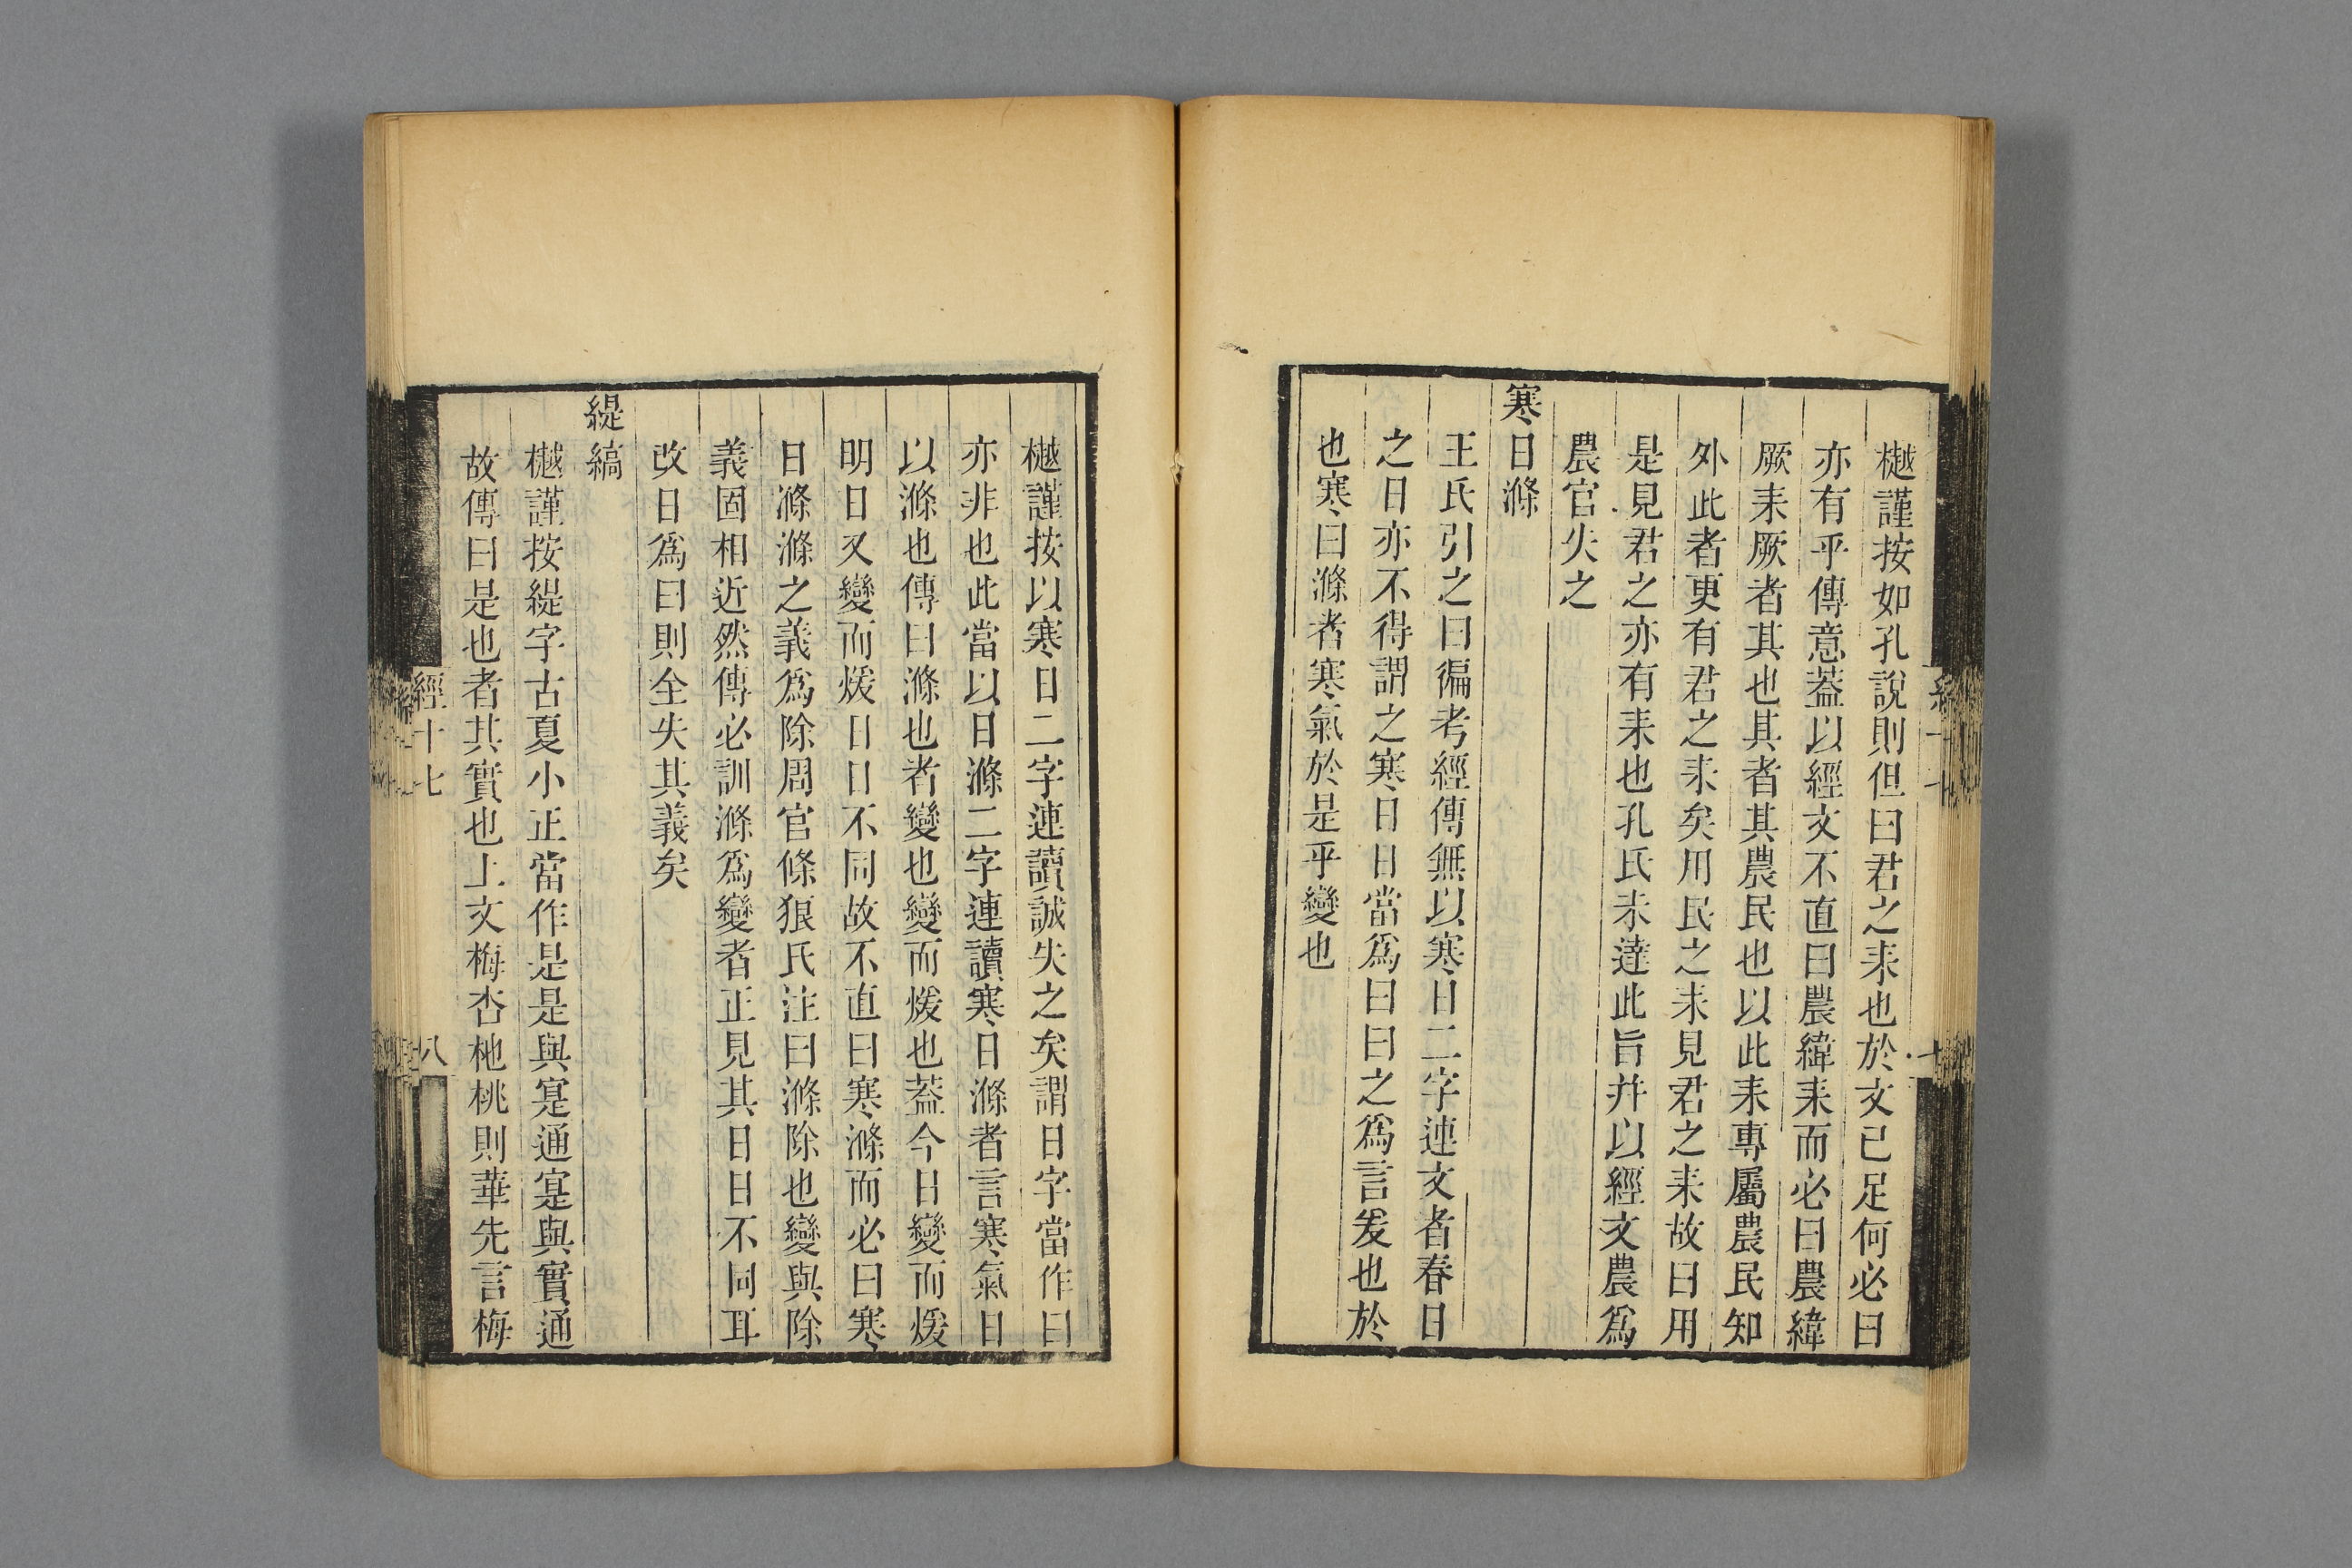 樾謹按如孔說則但曰君之耒也於文已足何必曰
亦有乎傳意蓋以經文不直曰農緯耒而必曰農緯
厥耒厥者其也其者其農民也以此耒專屬農民知
外此者更有君之耒矣用民之耒見君之耒故曰用
是見君之亦有耒也孔氏未達此旨并以經文農爲
農官失之
寒日滌
王氏引之曰徧考經傳無以寒日二字連文者春日
之日亦不得謂之寒日日當爲曰曰之爲言爰也於
也寒曰滌者寒氣於是乎變也
樾謹按以寒日二字連讀誠失之矣謂日字當作曰
亦非也此當以日滌二字連讀寒日滌者言寒氣日
以滌也傳曰滌也者變也變而煖也蓋今日變而煖
明日又變而煖日日不同故不直曰寒滌而必曰寒
日滌滌之義爲除周官條狼氏注曰滌除也變與除
義固相近然傳必訓滌爲變者正見其日日不同耳
改日爲曰則全失其義矣
緹縞
樾謹按緹字古夏小正當作是是與寔通寔與實通
故傳曰是也者其實也上文梅杏杝桃則華先言梅
經十七
八